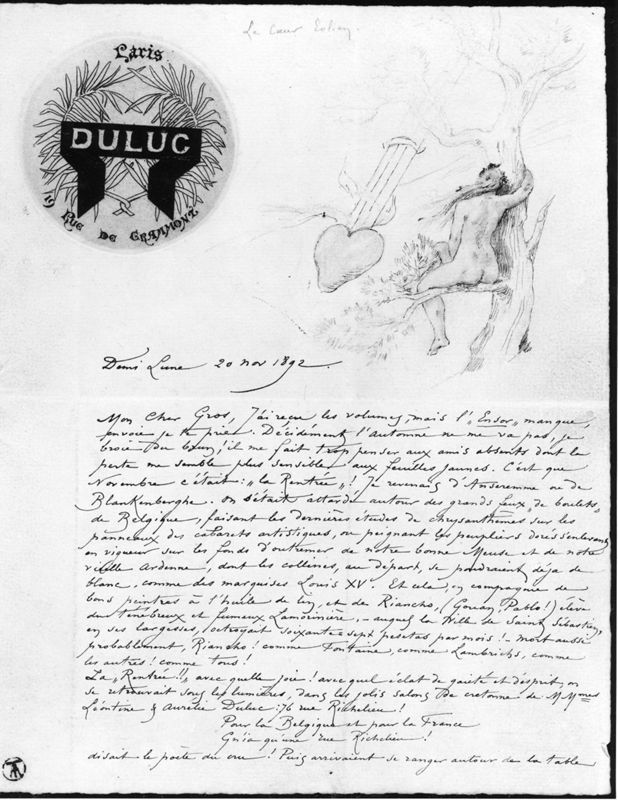 Le Cœur Eolien
Paris
DULUC
19 RUE DE GRAMMONT
Demi Lune 20 nov 1892.
Mon Cher Gros, J'ai reçu les volumes, mais l'"Ensor" manque,
envoie je te prie. Décidément l'automne ne me va pas, je
broie du brun; il me fait trop penser aux amis absents dont la
perte me semble plus sensible aux feuilles jaunes. C'est que
Novembre c'était: "la Rentrée"! Je revenais d'Anseremme ou de
Blankenberghe. On s'était attardé autour des grands feux "de boulets"
de Belgique, faisant les dernières études de chrysanthèmes sur les
panneaux des cabarets artistiques, ou peignant les peupliers dorés s'enlevant
en vigueur sur les fonds d'outremer de notre bonne Meuse et de notre
vieille Ardenne, dont les collines, au départ, se poudraient déjà de
blanc, comme des marquises Louis XV. Et cela, en compagnie de
bons peintres à l'huile de lin, et de Riancho, (Gouan Pablo!) élève
du ténébreux et fumeux Lamorinière, - auquel la Ville de Saint Sébastien,
en ses largesses, octroyait soixante sept pesetas par mois! - mort aussi
probablement, Riancho! comme Fontaine, comme Lambrichs, comme
les autres! comme tous!
La "Rentrée!!" avec quelle joie! avec quel éclat de gaieté et d'esprit, on
se retrouvait sous les lumières, dans les jolis salons de cretonne de M Mmes
Léontine & Aurélie Duluc: 76 rue Richelieu!
Pour la Belgique et pour la France
Gn'ia qu'une rue Richelieu!
disait le poète du cru! Puis arrivaient se ranger autour de la table